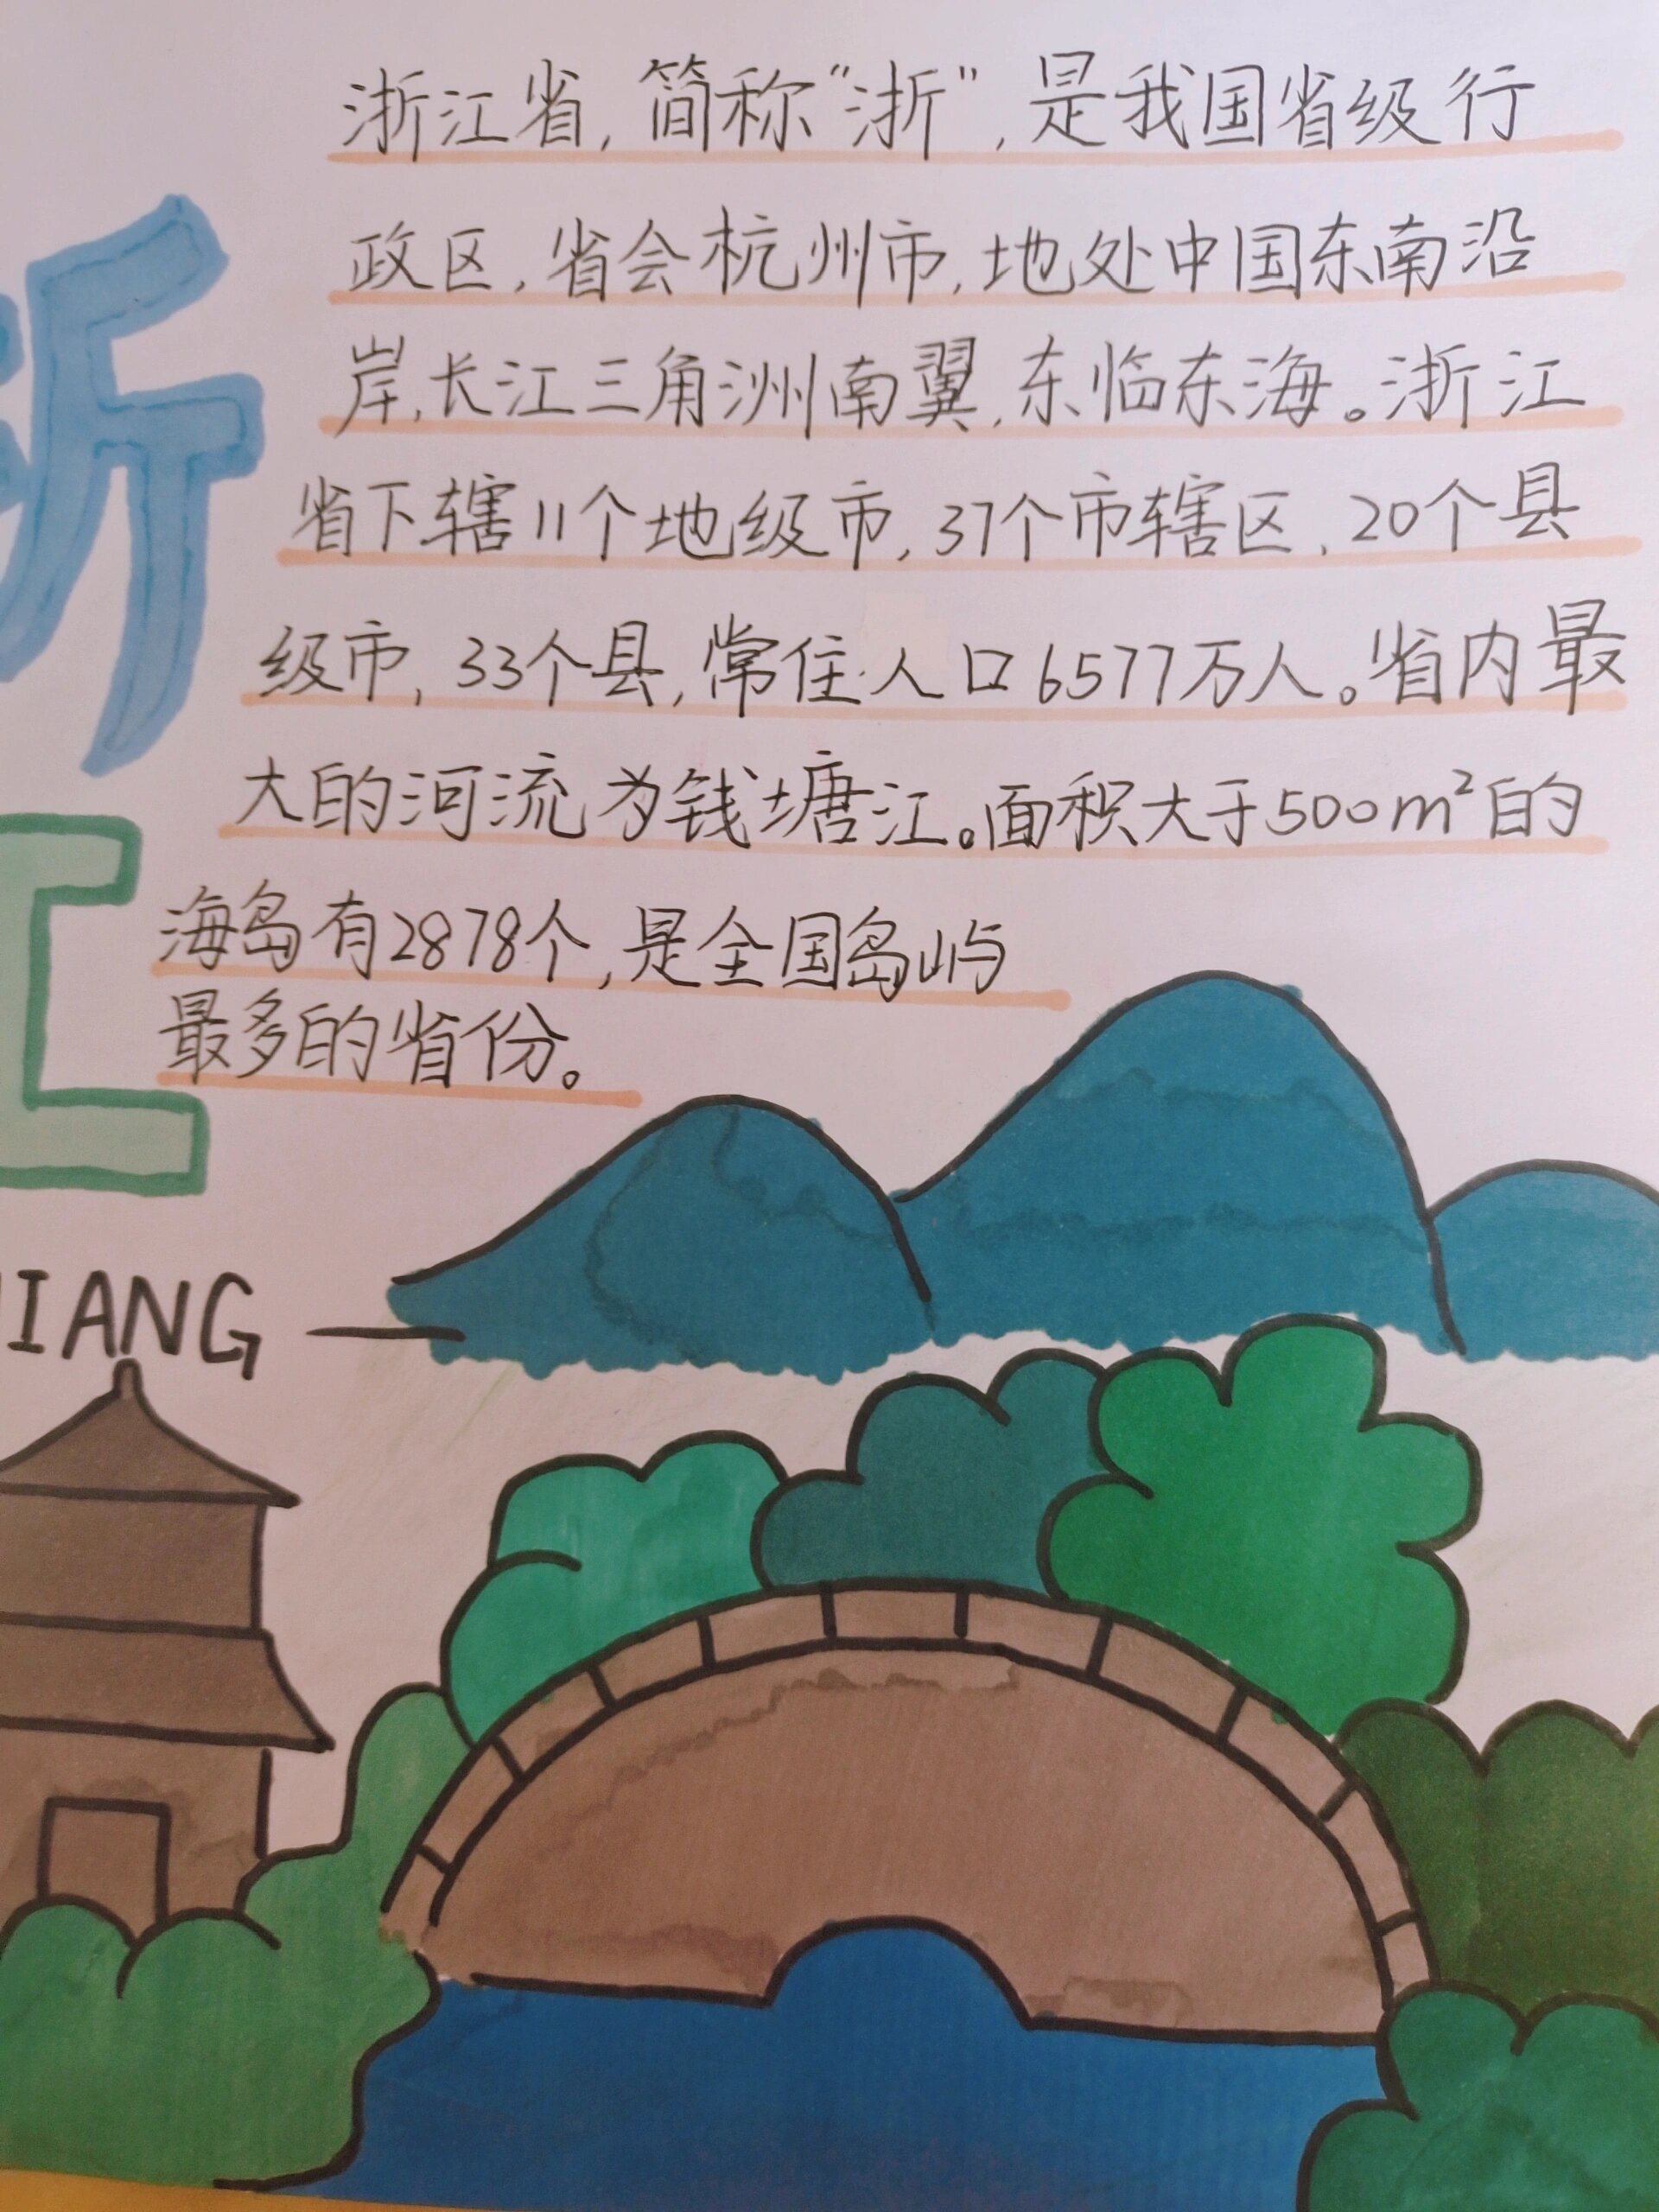 浙江省,简称“浙”,是我国省级行
政区,省会杭州市,地处中国东南沿
岸,长江三角洲南翼,东临东海。浙江
省下辖11个地级市,37个市辖区,20个县
级市,33个县,常住人口6577万人。省内最
大的河流为钱塘江。面积大于500m²的
海岛有2878个,是全国岛屿
最多的省份。
浙
江
JIANG